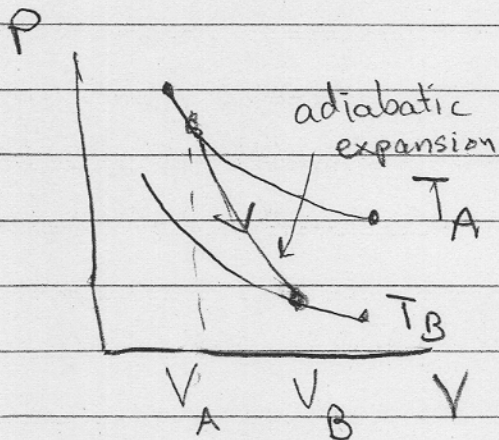 P
adiabatic
expansion
T_A
T_B
V_A V_B V